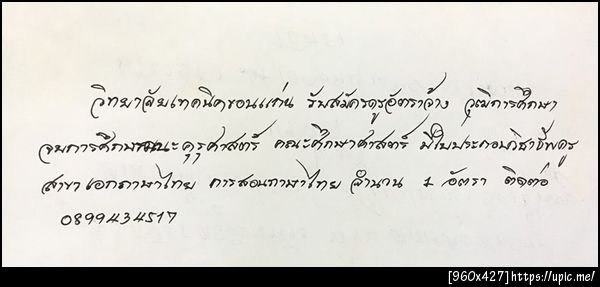 วิทยาลัยเทคนิคขอนแก่น รับสมัครครูอัตราจ้าง วุฒิการศึกษา
จบการศึกษาคณะคุรุศาสตร์ คณะศึกษาศาสตร์ มีใบประกอบวิชาชีพครู
สาขาเอกภาษาไทย การสอนภาษาไทย จำนวน 1 อัตรา ติดต่อ
0899434517
[960x427] https://upic.me/